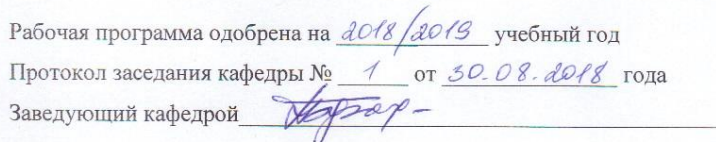 Рабочая программа одобрена на 2018/2019 учебный год
Протокол заседания кафедры № 1 от 30.08.2018 года
Заведующий кафедрой